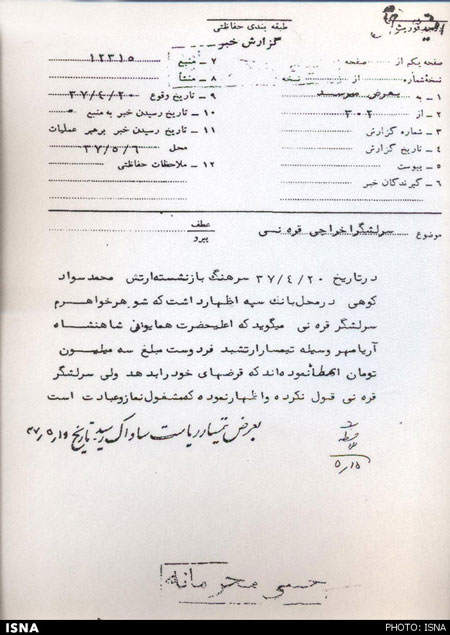 طبقه بندی حفاظتی
گزارش خبر
صفحه یکم از صفحه
نسخه شماره از نسخه
۱ – به بعرض میرسد
۲ – از ۳۰۲
۳ – شماره گزارش
۴ – تاریخ گزارش
۵ – پیوست
۶ – گیرندگان خبر
۷ – منبع ۱۲۳۱۵
۸ – منشأ
۹ – تاریخ وقوع ۳۷/۴/۲۰
۱۰ – تاریخ رسیدن خبر به منبع
۱۱ – تاریخ رسیدن خبر برهبر عملیات
محل ۳۷/۵/۶
۱۲ – ملاحظات حفاظتی
موضوع سرلشگر اخراجی قره نی
عطف
پیرو
در تاریخ ۳۷/۴/۲۰ سرهنگ بازنشسته ارتش محمد سواد
کوهی در محل بانک سپه اظهار داشت که شوهر خواهرم
سرلشگر قره نی میگوید که اعلیحضرت همایونی شاهنشاه
آریامهر وسیله تیمسار ارتشبد فردوست مبلغ سه میلیون
تومان اعطا نموده اند که قرضهای خود را بدهد ولی سرلشگر
قره نی قبول نکرده و اظهار نموده که مشغول نماز و عبادت است
بعرض تیمسار ریاست ساواک رسید. تاریخ ۳۷/۵/۱۵
۵/۱۵
خیلی محرمانه
ISNA
PHOTO: ISNA